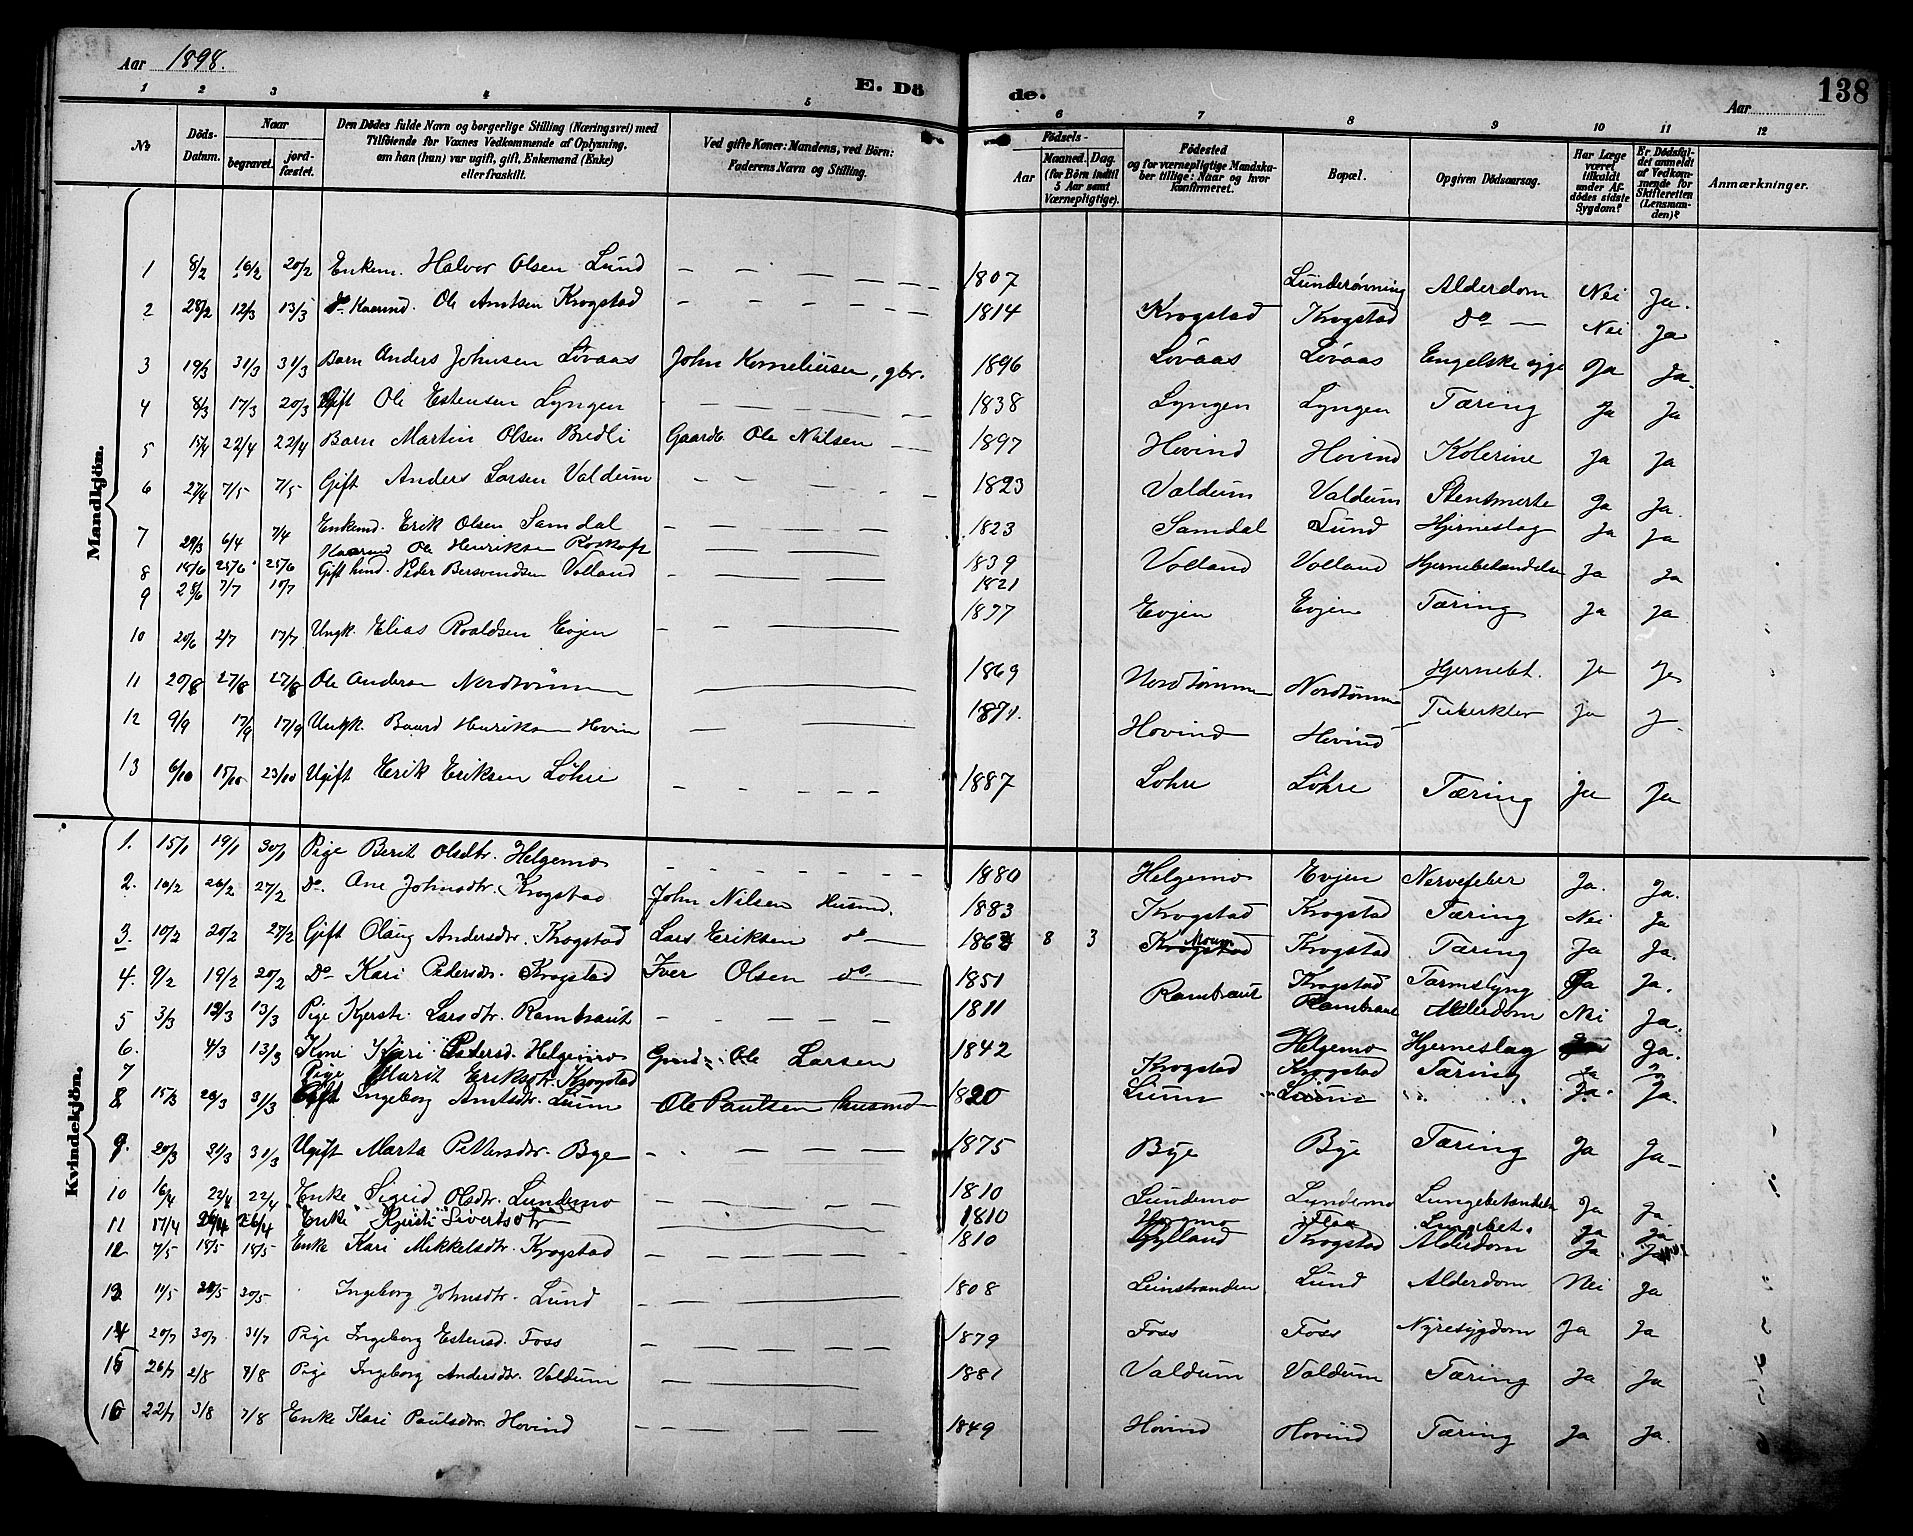 Aar 1898. E. Dö de. Aar 138
1 2 3 4 5 6 7 8 9 10 11 12
No Döds-Datum. Naar begravet. jordfæstet. Den Dödes fulde Navn og borgerlige Stilling (Næringsvei) med Tilföiende for Voxnes Vedkommende af Oplysning, om han (hun) var ugift, gift, Enkemand (Enke) eller fraskilt. Ved gifte Koner: Mandens, ved Börn: Faderens Navn og Stilling. Födsels- Aar Maaned. Dag. (for Börn indtil 5 Aar samt Værnepligtige). Födested og for værnepligtige Mandskaber tillige: Naar og hvor konfirmeret. Bopæl. Opgiven Dödsaarsag. Har Læge været tilkaldt under Afdödes sidste Sygdom? Er Dödsfaldet anmeldt af Vedkommende for Skifteretten (Lensmanden)? Anmærkninger.
Mandkjön.
1 8/2 16/2 20/2 Enkem. Halvor Olsen Lund 1807 Lunderövning Alderdom Nei Ja.
2 28/2 12/3 13/3 do Kaarmd. Ole Arntsen Krogstad 1814 Krogstad Krogstad Do Nei Ja
3 19/3 31/3 31/3 Barn Anders Johnsen Lövaas John Korneliusen, gbr. 1896 Lövaas Lövaas Engelske syge Ja Ja.
4 8/3 17/3 20/3 Gift Ole Estensen Lyngen 1838 Lyngen Lyngen Tæring Ja Ja
5 15/4 22/4 22/4 Barn Martin Olsen Bredli Gaardb. Ole Nilsen 1897 Hovind Hovind Kolerine Ja Ja
6 27/4 7/5 7/5 Gift Anders Larsen Valdum 1823 Valdum Valdum Stensmerte Ja Ja.
7 29/3 6/4 7/4 Enkemd. Erik Olsen Samdal 1823 Samdal Lund Hjerneslag Ja Ja
8 18/6 25/6 25/6 Kaarmd Ole Henriksen 1839 Volland Volland Hjernebetændelse Ja Ja
9 28/6 7/7 10/7 Gift hmd. Peder Bersvendsen Volland 1821
10 20/6 2/7 17/7 Ungk. Elias Roaldsen Evjen 1877 Evjen Evjen Tæring Ja Ja
11 20/8 27/8 27/8 Ole Andersen Nordtömme 1869 Nordtömme Nordtömme Hjernebet. Ja Ja
12 9/9 17/9 17/9 Ungk. Baard Henriksen Hovin 1871. Hovind Hovind Tuberkler Ja
13 6/10 15/10 23/10 Ugift Erik Eriksen Löhre 1887 Löhre Löhre Tæring Ja Ja
Kvindekjön.
1. 15/1 19/1 30/1 Pige Berit Olsdtr. Helgemo 1880 Helgemo Evjen Nervefeber Ja. Ja.
2. 10/2 26/2 27/2 Do. Ane Johnsdtr. Krogstad John Nilsen Husmd. 1883 Krogstad Krogstad Tæring Nei Ja
3. 10/2 20/2 27/2 Gift Olaug Andersdtr. Krogstad Lars Eriksen do 8 3 Krogstad Krogstad Tæring Ja Ja.
4. 9/2 19/2 20/2 Do Kari Pedersdtr. Krogstad Iver Olsen do 1851 Krogstad Tarmslyng Ja Ja.
5 3/3 13/3 13/3 Pige Kjersti Larsdtr. Rambraut 1811 Rambraut Rambraut Alderdom Nei Ja.
6. 4/3 13/3 Kone Kari Pedersd. Helgemo Ole Larsen 1842 Helgemo Hjerneslag Ja.
7 Pige Marit Eriksdtr. Krogstad Krogstad Krogstad Tæring Ja Ja
8 15/3 26/3 31/3 Gift Ingeborg Arntsdtr. Luum Ole Paulsen husmd 1820 Luum Luum Ja. Ja.
9. 20/3 31/3 31/3 Ugift Marta Pettersdtr. Bye 1875 Bye Bye Tæring Ja Ja
10 16/4 22/4 22/4 Enke Sigrid Olsdtr. Lundemo 1810 Lundemo Lundemo Lungebetændelse Ja Ja
11 17/4 26/4 26/4 Enke Kjersti Sivertsdtr 1810 Flaa Lungebet. Ja Ja
12 7/5 18/5 18/5 Enke Kari Mikkelsdtr. Krogstad 1810 Gylland Krogstad Alderdom Ja
13 11/5 20/5 20/5 Ingeborg Johnsdtr. Lund 1808 Leinstranden Lund Alderdom Nei Ja
14 20/7 30/7 31/7 Pige Ingeborg Estensd. Foss 1879 Foss Foss Nyresygdom Ja Ja
15 26/7 2/8 7/8 Pige Ingeborg Andersdtr. Valdum 1881 Valdum Valdum Tæring Ja Ja
16 22/7 3/8 7/8 Enke Kari Paulsdtr. Hovind 1849 Hovind Hovind Tæring Ja Ja.